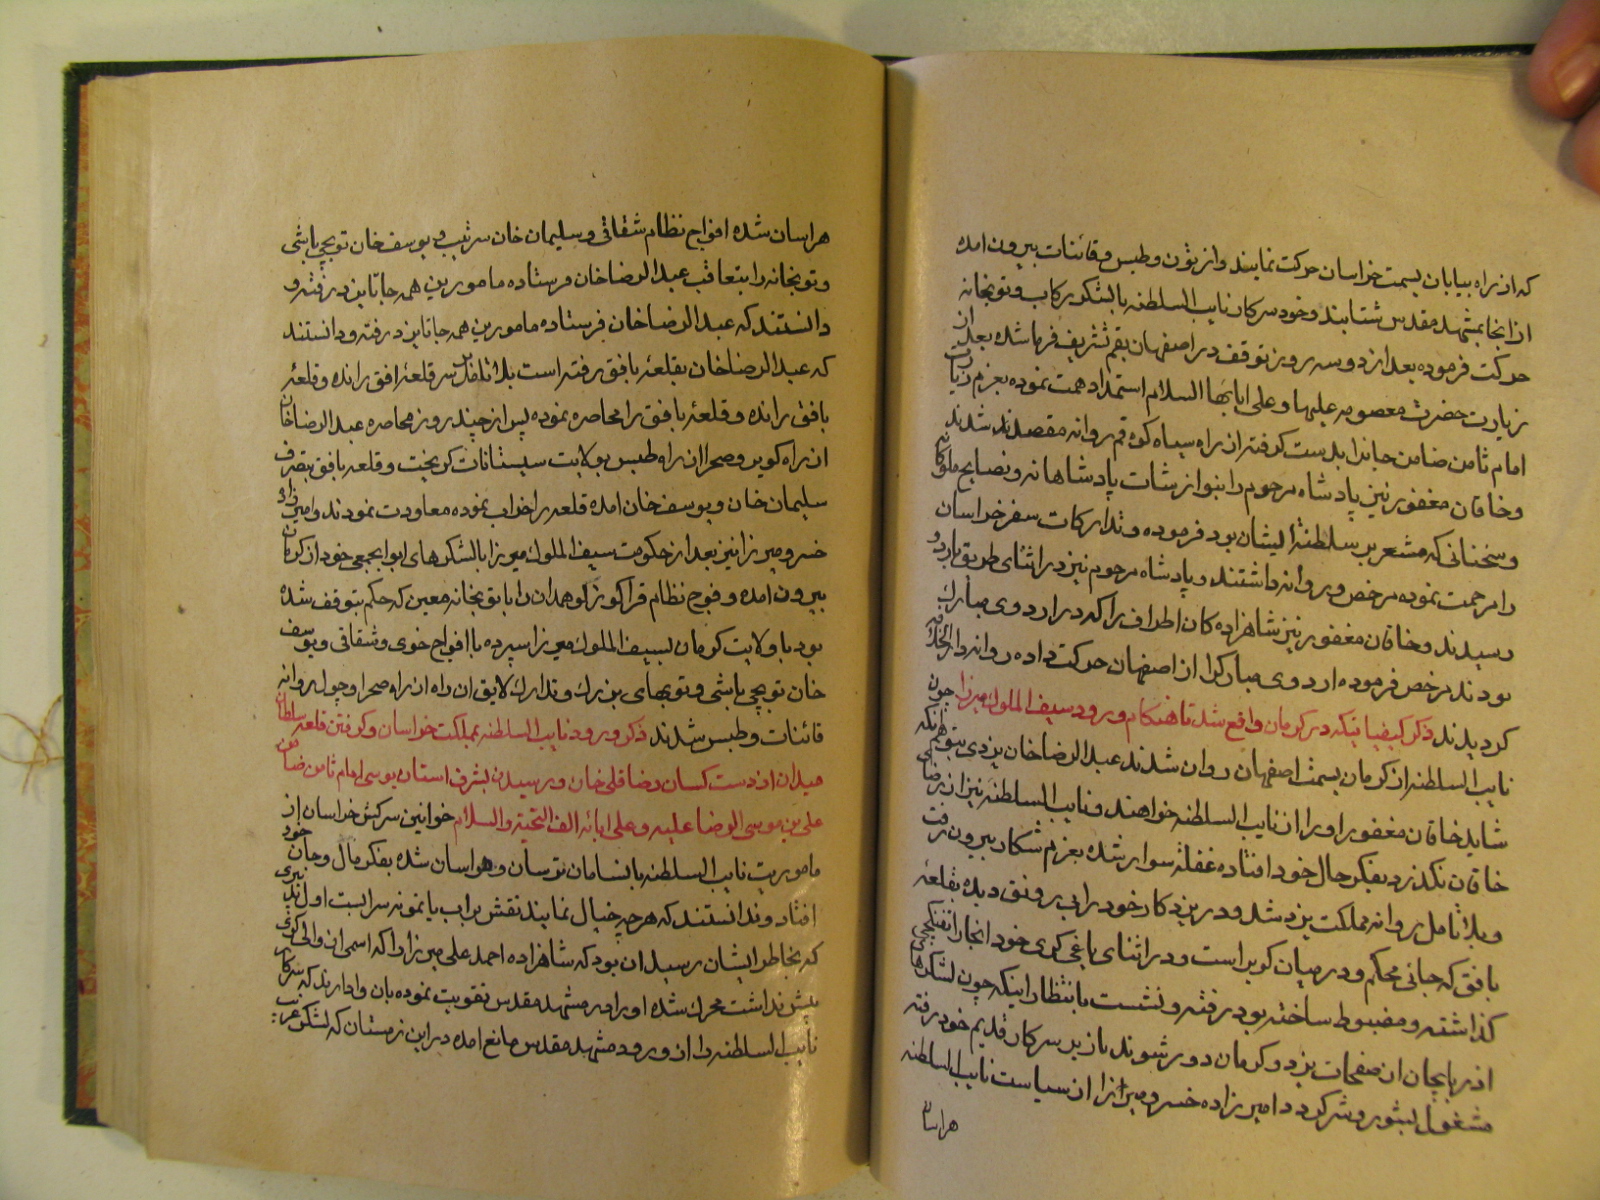 که از راه بیابان بسمت خراسان حرکت نمایند و از تون و طبس و قائنات بیرون امده
از انجا بمشهد مقدس شتابند و خود سرکار نایب السلطنه با لشکر رکاب و توپخانه
حرکت فرموده بعد از دو سه روز توقف در اصفهان بقم تشریف فرما شده بعد از
زیارت حضرت معصومه علیها و علی ابائها السلام استمداد همت نموده بعزم زیارت
امام ثامن ضامن جانرا بدست گرفته از راه سیاه کوه قم روانه مقصد شدند
و خاقان مغفور نیز پادشاه مرحوم را بنوازشات پادشاهانه و نصایح ملوکانه
و سخنانی که مشعر بر سلطنة ایشان بود فرموده و تدارکات سفر خراسان
را مرحمت نموده مرخص و روانه داشتند و پادشاه مرحوم نیز در اثنای طریق باردو
رسیدند و خاقان مغفور نیز شاهزاده کان اطراف را که در اردوی مبارک
بودند مرخص فرموده اردوی مبارک از اصفهان حرکت داده روانه دارالخلافه
کردیدند ذکر کیفیاتیکه در کرمان واقع شد تا هنکام ورود سیف الملوک میرزا چون
نایب السلطنه از کرمان بسمت اصفهان روان شدند عبدالرضا خان یزدی بتوهم انکه
شاید خاقان مغفور او را از نایب السلطنه خواهند و نایب السلطنه نیز از رضای
خاقان نکذرد بفکر حال خود افتاده غفلة سوار شده بعزم شکار بیرون رفت
و بلا تامل روانه مملکت یزد شد و در یزد کار خود را بی رونق دیده بقلعه
بافق که جائی محکم و در میان کویر است و در اثنای یاغی کری خود انجا را تفنکچی
کذاشته و مضبوط ساخته بود رفته و نشست بانتظار اینکه چون لشکرهای
اذربایجان از صفحات یزد و کرمان دور شوند باز بر سر کار قدیم خود رفته
مشغول بشور و شر کردد امیرزاده خسرو میرزا از سیاست نایب السلطنه
هراسان
هراسان شده افواج نظام شقاقی و سلیمان خان سرتیپ و یوسف خان توپچی باشی
و توپخانه را بتعاقب عبدالرضا خان فرستاده مامورین همه جا تا یزد رفته و
دانستند که عبدالرضا خان فرستاده مامورین همه جا تا یزد رفته و دانستند
که عبدالرضا خان بقلعهٔ بافق رفته است بلا تامل بر سر قلعهٔ افق رانده و قلعهٔ
بافق رانده و قلعهٔ بافق را محاصره نموده پس از چند روز محاصره عبدالرضا خان
از راه کویر و صحرا از راه طبس بولایت سیستانات کریخت و قلعه بافق بتصرف
سلیمان خان و یوسف خان امده قلعه را خراب نموده معاودت نمودند و امیرزاده
خسرو میرزا نیز بعد از حکومت سیف الملوک میرزا با لشکرهای ابوابجمعی خود از کرمان
بیرون امده و فوج نظام قراکوزلو همدان را با توپخانه معین که حکم بتوقف شده
بود با ولایت کرمان بسیف الملوک میرزا سپرده با افواج خوی و شقاقی و یوسف
خان توپچی باشی و توپهای بزرک و تدارک لایق ان راه از راه صحرا و چول روانه
قائنات و طبس شدند ذکر ورود نایب السلطنه بمملکت خراسان و کرفتن قلعه سلطان
میدان از دست کسان رضا قلی خان و رسیدن بشرف استان بوسی امام ثامن ضامن
علی بن موسی الرضا علیه و علی ابائه الف التحیة والسلام خوانین سرکش خراسان از
ماموریت نایب السلطنه بانسامان ترسان و هراسان شده بفکر مال و جان خود
افتاد و ندانستند که هرچه خیال نمایند نقش بر اب یا نمونه سرابست اول تدبیری
که بخاطر ایشان رسید ان بود که شاهزاده احمد علی میرزا را که اسمی از والی کری
بیش نداشت محرک شده او را در مشهد مقدس تقویت نموده بان وادارند که سرکار
نایب السلطنه را از ورود مشهد مقدس مانع امده در این زمستان که لشکر